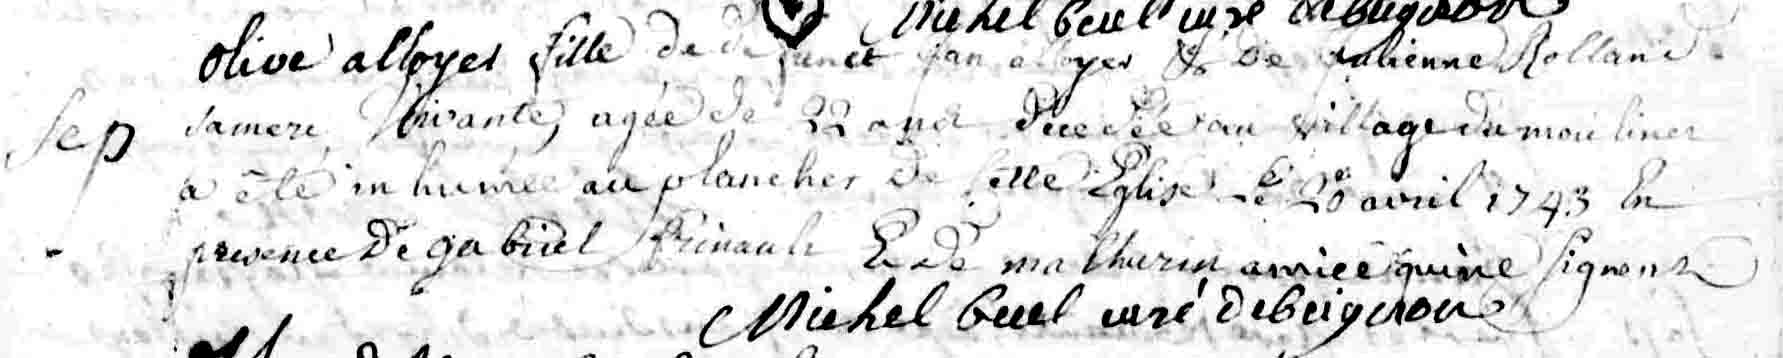 Michel buel curé de beignon
olive alloyer fille de defunct jan alloyer & de julienne Rolland
sep
sa mere vivante, agée de 22 ans decedée au village du mouliner
a été in humée au plancher de cette Eglise le 28 avril 1743 En
presence de gabriel & de mathurin amice qui ne signent
Michel buel curé de beignon